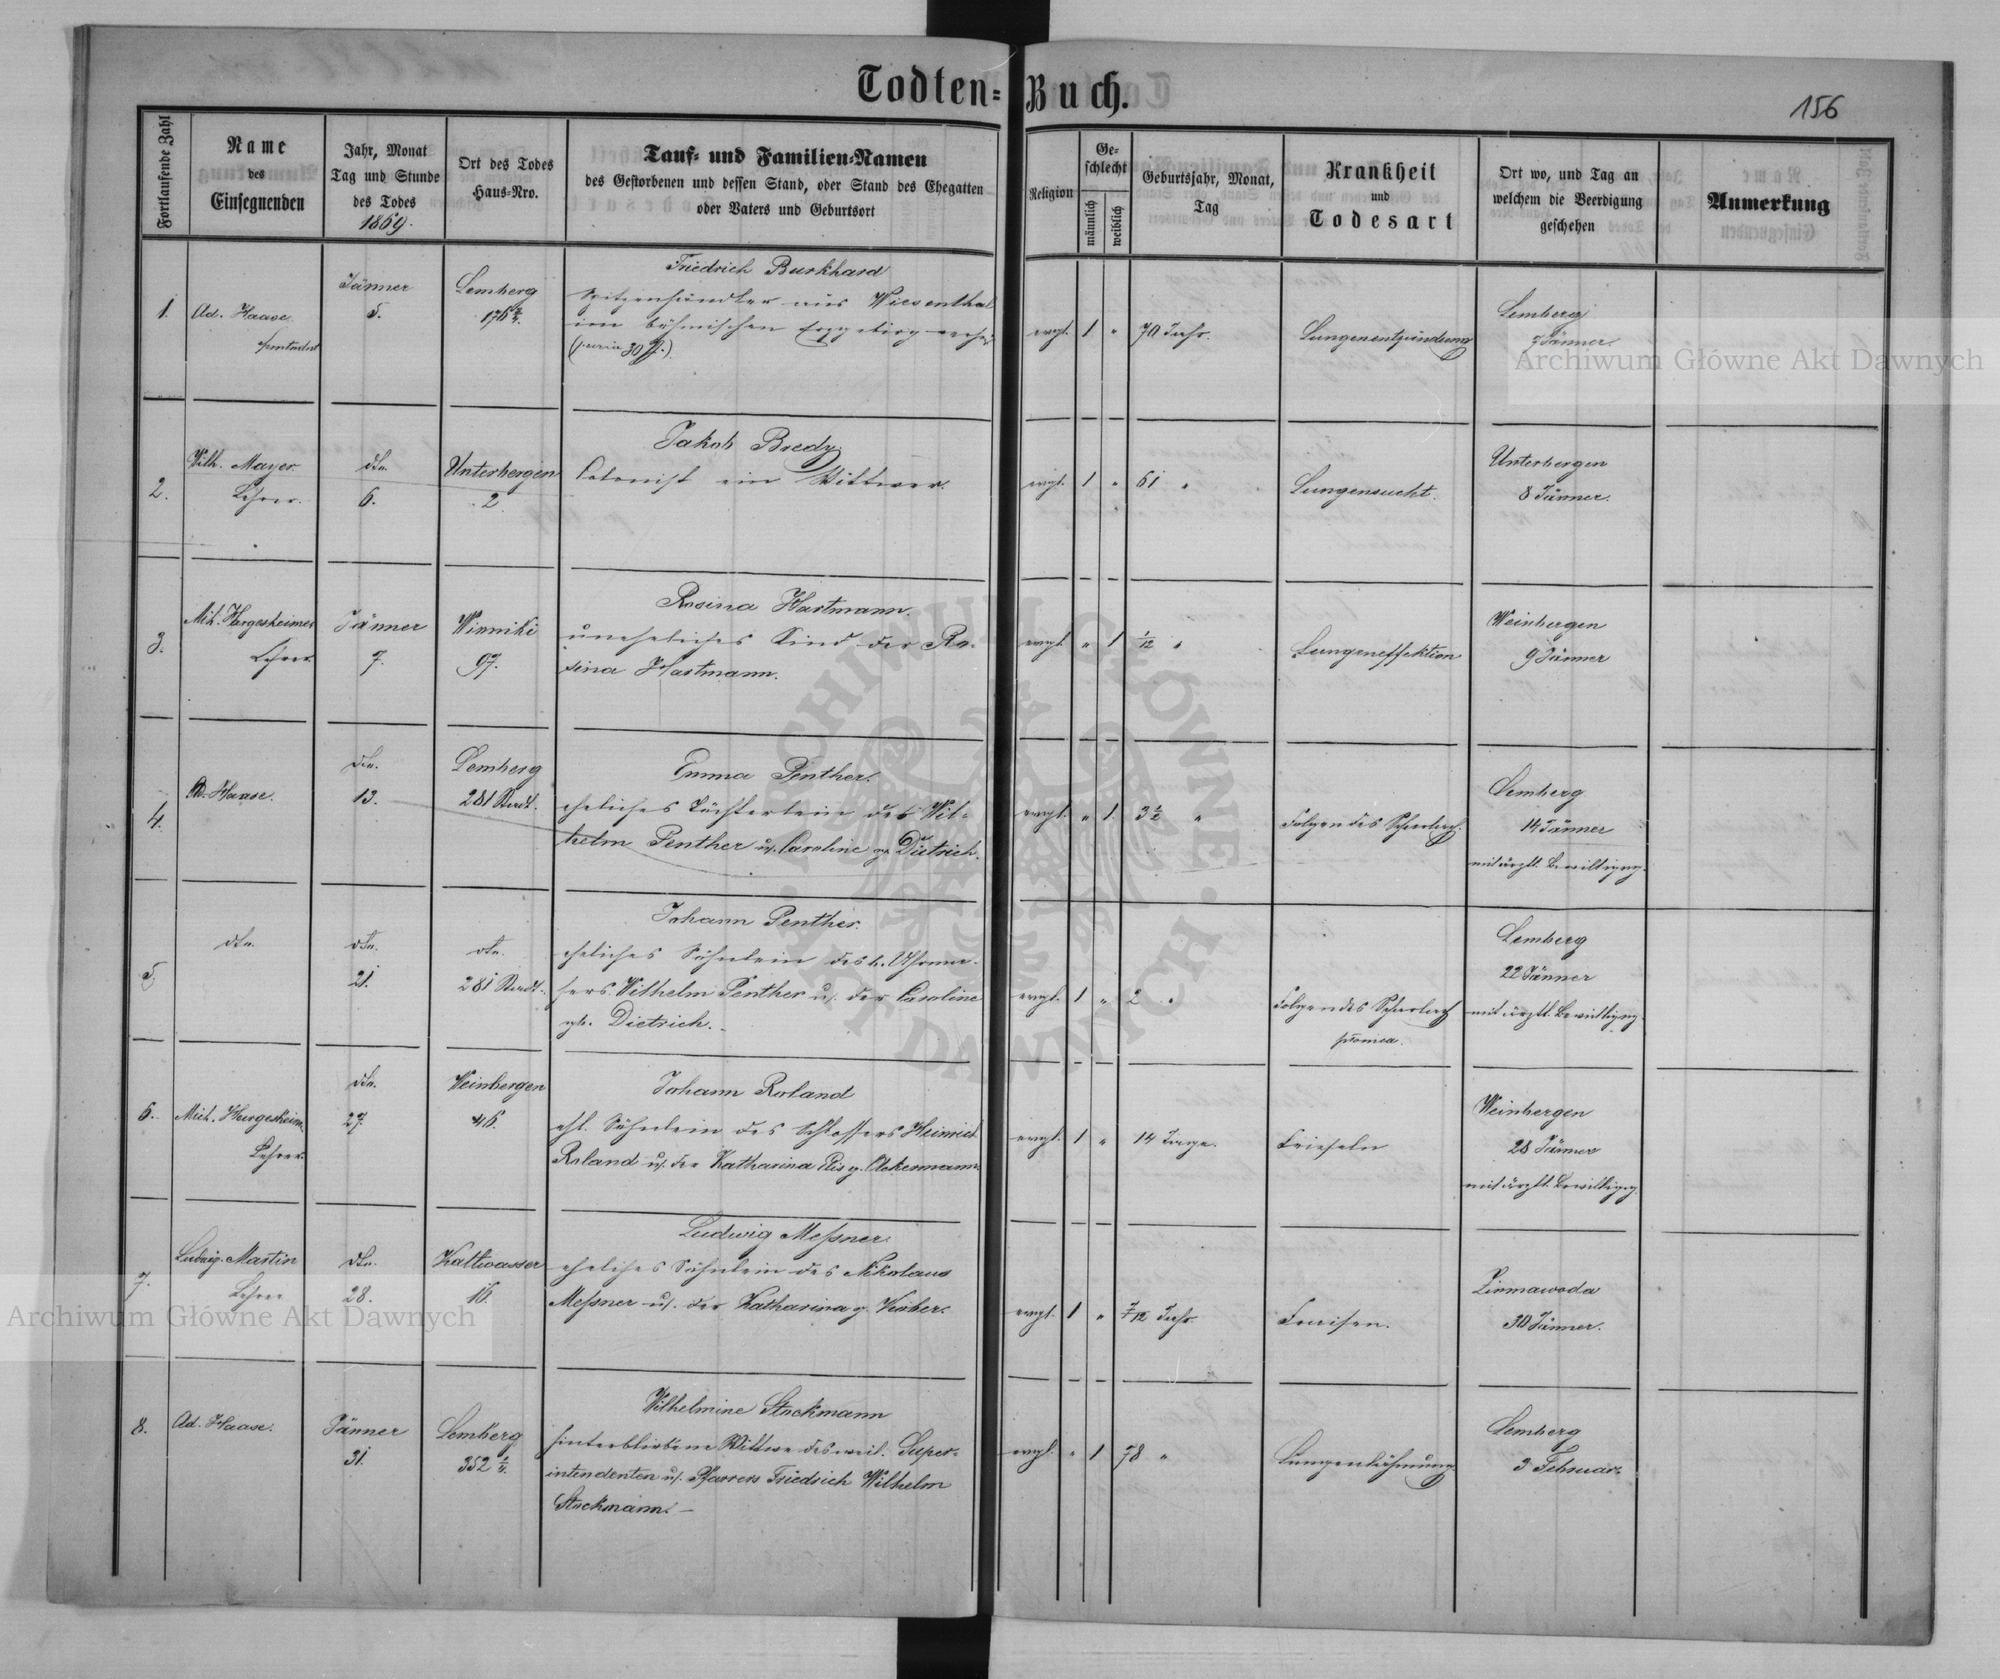 Todten-Buch.
156
Fortlaufende Zahl
Name
des
Einsegnenden
Jahr, Monat
Tag und Stunde
des Todes
1869.
Ort des Todes
Haus-Nro.
Tauf- und Familien-Namen
des Gestorbenen und dessen Stand, oder Stand des Ehegatten
oder Vaters und Geburtsort
Religion
Ge-
schlecht
männlich
weiblich
Geburtsjahr, Monat,
Tag
Krankheit
und
Todesart
Ort wo, und Tag an
welchem die Beerdigung
geschehen
Anmerkung
1.
Ad. Haase
Jänner
5.
Lemberg
Friedrich Burkhard
Spitzenhändler aus Wiesenthal
im böhmischen
evgl. 1 " 70 Jahr.
Lungenentzündung
Lemberg
7 Jänner.
2.
Wilh. Mayer
Lehrer.
dto.
6.
Unterbergen
2
Jakob Bredy
Colonist ein Wittwer.
evgl. 1 " 61 "
Lungensucht.
Unterbergen
8 Jänner.
3.
Mich. Hargesheimer
Lehrer.
Jänner
7.
Winniki
97.
Rosina Hartmann.
uneheliches Kind der Ro-
sina Hartmann.
evgl. " 1 1/12 "
Lungeneffektion
Weinbergen
9 Jänner
4.
Ad. Haase.
dto.
13.
Lemberg
281 Stadt.
Emma Penther.
eheliches Töchterlein des Wil-
helm Penther u. Caroline g. Dietrich.
evgl. " 1 3 1/2 "
Folgen des Scharlach.
Lemberg
14 Jänner
mit ärztl. Bewilligung.
5
dto.
dto.
21.
dto.
281 Stadt.
Johann Penther.
eheliches Söhnlein des
Wilhelm Penther u. der Caroline
gb. Dietrich.
evgl. 1 " 2 "
Folgen des Scharlach
Lemberg
22 Jänner
mit ärztl. Bewilligung.
6.
Mich. Hargesheim.
Lehrer.
dto.
27.
Weinbergen
46.
Johann Roland
ehl. Söhnlein des Schlossers Heinrich
Roland u. der Katharina Elis g. Ackermann.
evgl. 1 " 14 Tage.
Frieseln
Weinbergen
28 Jänner
mit ärztl. Bewilligung.
7.
Ludwig Martin
Lehrer
dto.
28.
Kaltwasser
16.
Ludwig Meßner.
eheliches Söhnlein des Nikolaus
Meßner u. der Katharina g. Keiber.
evgl. 1 " 7/12 Jahr.
Fraisen.
Zimnawoda
30 Jänner.
8.
Ad. Haase.
Jänner
31.
Lemberg
352
Wilhelmine Stockmann
hinterbliebene Wittwe des weil. Super-
intendenten u. Pfarrers Friedrich Wilhelm
Stockmann.
evgl. " 1 78 "
Lungenlähmung
Lemberg
3 Februar.
Archiwum Główne Akt Dawnych
Archiwum Główne Akt Dawnych
ARCHIWUM GŁÓWNE AKT DAWNYCH